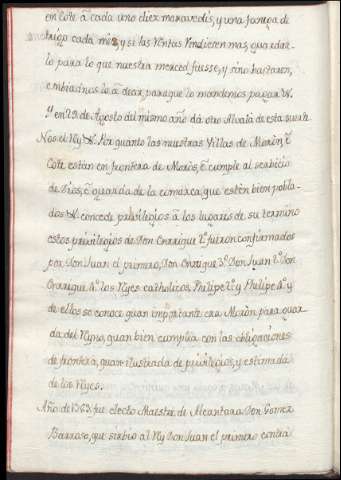 en Cote a cada uno diez maravedis, y una fanega de
trigo cada mes, y si las Rentas rindieren mas, guardar
lo para lo que nuestra merced fuesse, y sino bastaren,
embiarinos lo a decir, paraque lo mandemos pagar &.
Y en 29 de Agosto del mismo año dá otro Alvala de esta suerte
Nos el Rey &. Por quanto las nuestras Villas de Moròn, è
Cote estàn en frontera de Moros, è cumple al serbicio
de Dios, è guarda de la comarca, que estèn bien pobla-
dos &. concede privilegios à los lugares de su termino
estos privilegios de Don Enrrique 2º fueron confirmados
por Don Juan el primero, Don Enrrique 3º Don Juan 2º Don
Enrrique 4º los Reyes catholicos, Philipe 2º y Philipe 4º y
de ellos se conoce quan importante era Moròn para guar
da del Reyno, quan bien cumplia con las obligaciones
de frontera, quan ilustrada de privilegios, y estimada
de los Reyes.
Año de 1363 fue electo Maestre de Alcantara Don Gomez
Barroso, que sirbio al Rey Don Juan el primero contra